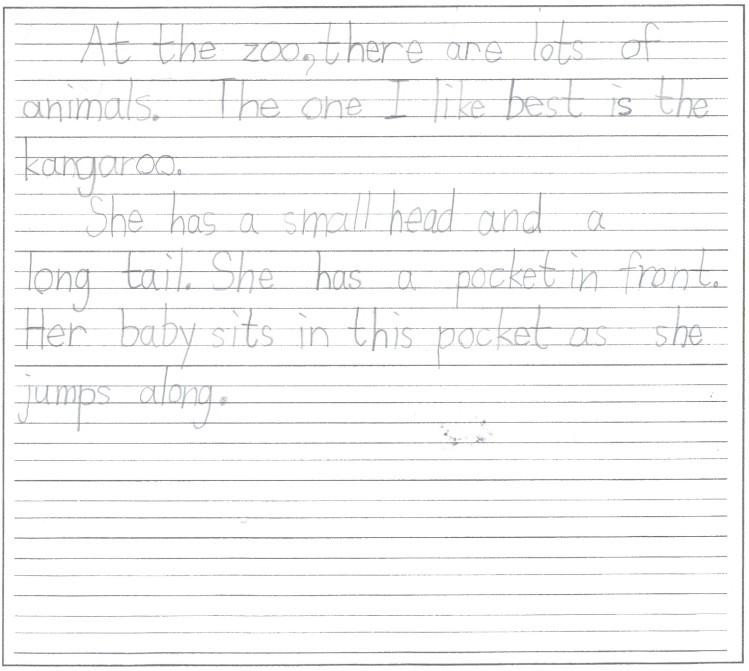 At the zoo, there are lots of
animals. The one I like best is the
kangaroo.
She has a small head and a
long tail. She has a pocket in front.
Her baby sits in this pocket as she
jumps along.